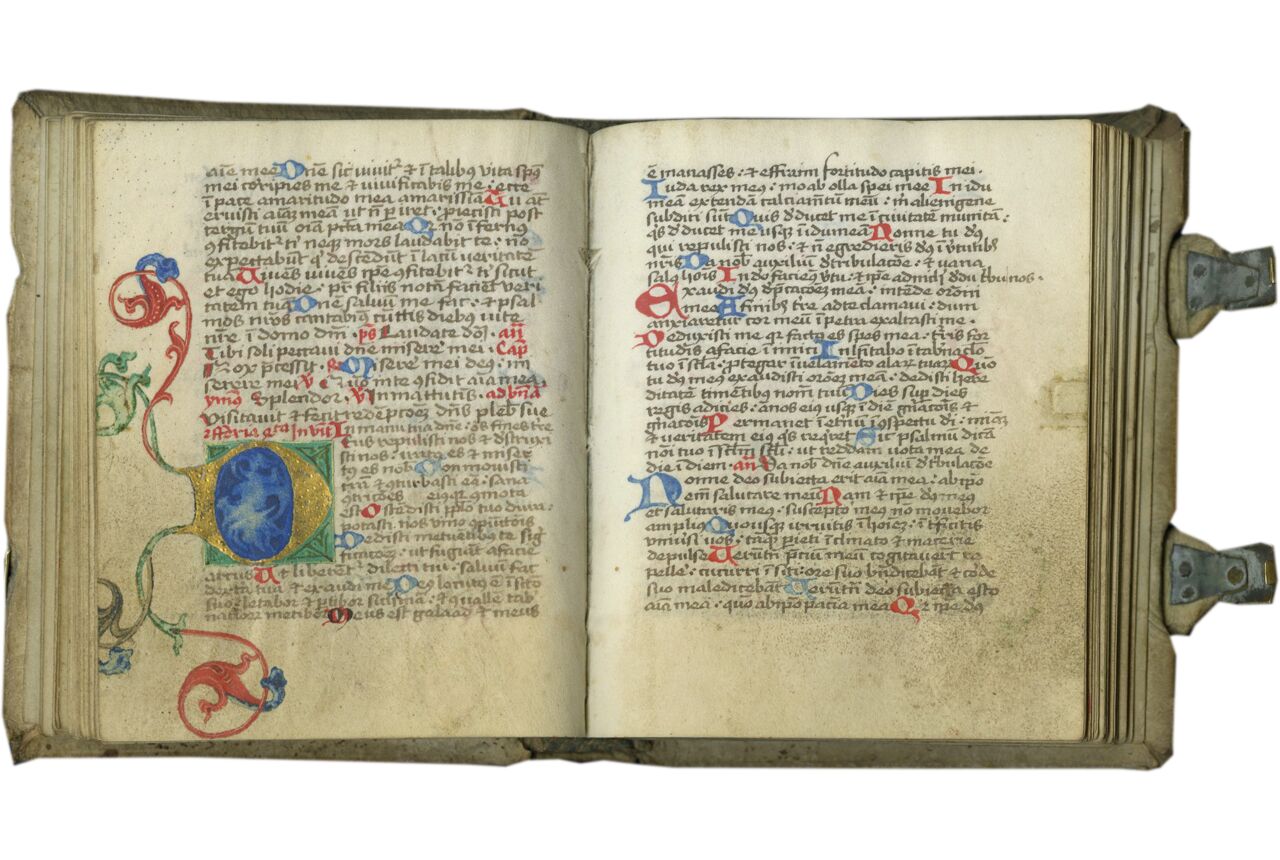 aīe mee One sic vivit᷑ & ī talibus vita sp̄s
mei corripies me & vivificabis me : ecce
ī pace amaritudo mea amarissīa Tu aūt
eruisti aīaȝ meā ut nō ꝑiret : proiecisti post
tergū tuū oīa pctā mea Qꝛ nō īfernus
ꝯfitebit᷑ ti neqꝫ mors laudabit te : nō
expectabūt qͥ descēdūt ī lacū veritatē
tuā Vivēs vivēs ip̄e ꝯfitebit᷑ ti sicut
et ego hodie : pr̄ filiis notā faciet veri
tatem tuā Dn̄e salvū me fac : & psal
mos nr̄os cantabiꝰ cūctis diebus vite
nr̄e ī domo dn̄i . p̄s Laudate d . an̄
Tibi soli peccavi dn̄e miserē mei . Cap̄
Nox p̄cessit . Miserē mei deꝰ : mi
serere mei . v̄ qūo ī te ꝯfidit aīa mea .
ymnꝰ Splendor . v̄ In matutīs . ad bn̄a
Visitavit & fecit redēpcōeȝ dn̄s pleb̄ sue
In manu tua dn̄e : oēs fines tre
Deus repulisti nos & dstruxi
sti nos : iratꝰ es & miser
tꝰ es nob̄ Cōmovisti
trā & ꝯturbasti eā : sana
ꝯtricōēs eiꝰ qꝛ ꝯmota
est Ostēdisti pplo tuo dura :
potasti nos vīno ꝯpūctōis
Dedisti metuētibꝰ te sig
nificacōeȝ : ut fugiāt a facie
arcus Ut liberent᷑ dilecti tui : salvū fac
dextā tuā & exaudi me Deꝰ locutꝰ ē ī scō
suo : letabor & ꝑtibor siccimā : & ꝯvallē tab
naclor metibor Meus est galaad & meus
ē manasses : & effraim fortitudo capitis mei .
Iuda rex meꝰ : moab olla spei mee In idu
meā extendā calciamtū meū : m alienigene
subditi sūt Quis dducet me ī civitatē munitā :
qͥs dducet me usqꝫ ī idumeā Nonne tu dꝰ
qui repulisti nos : & nō egredieris dꝰ ī v̄tutibꝫ
nr̄is Da nob̄ auxiliū d tribulacōe : & vana
salꝰ hoīs In do faciemꝰ v̄tu : & ip̄e ad nichi ddu t̄bu nos .
Exaudi dꝰ dp̄cacōeȝ meā : intēde orōni
mee A finibꝫ tre ad te clamavi : dum
anxiaretur cor meū ī petra exaltasti me .
Deduxisti me qꝛ factꝰ es spes mea : turis for
titudīs a facie īimici Inhītabo ī tabnaclo
tuo ī scla : ꝓtegar ī velamēto alaꝝ tuaꝝ Qm̄
tu dꝰ meꝰ exaudisti orōeȝ meā : dedisti here
ditatē timētibꝰ nomī tuū Dies sup dies
regis adicies : ānos eiꝰ usqꝫ ī diē gn̄acōis &
gn̄acōis Permanet ī etnū ī ꝯspectu dī : mīaȝ
& veritatem eiꝰ qͥs reqret Sic psalmū dicā
nōī tuo ī sclm scli : ut reddam vota mea de
die ī diem . an̄ Da nob̄ dn̄e auxiliū d tribulacōe
Nonne deo subiecta erit aīa mea : ab ip̄o
enīm salutare meū Nam & ip̄e dꝰ meꝰ
et salutaris meꝰ : susceptor meꝰ nō movebor
ampliꝰ Quousqꝫ irruitis ī hoīeȝ : īt̄ficitis
univsī vos : taqꝫ pieti īclīnato & macerie
depulse Verūtn̄ pciū meū cogitaverūt re
pellē : cucurri ī siti : ore suo bn̄dicebāt & code
suo maledicebāt Verūtn̄ deo subiecta esto
aīa mea : qm̄ ab ip̄o pacīa mea Qꝛ ip̄e dꝰ